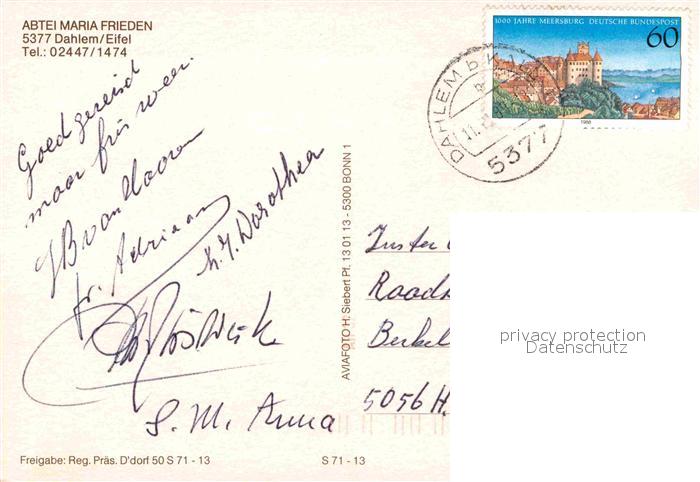 ABTEI MARIA FRIEDEN
5377 Dahlem/Eifel
Tel.: 02447/1474
1000 JAHRE MEERSBURG DEUTSCHE BUNDESPOST
60
1988
DAHLEM b
5377
Goed gereisd
maar fris weer.
fr. Adriaan
Dorothea
S. M. Anna
AVIAFOTO H. Siebert Pf. 13 01 13 - 5300 BONN 1
Zuster
Raad
Berkel
5056 H
privacy protection
Datenschutz
Freigabe: Reg. Präs. D'dorf 50 S 71 - 13
S 71 - 13